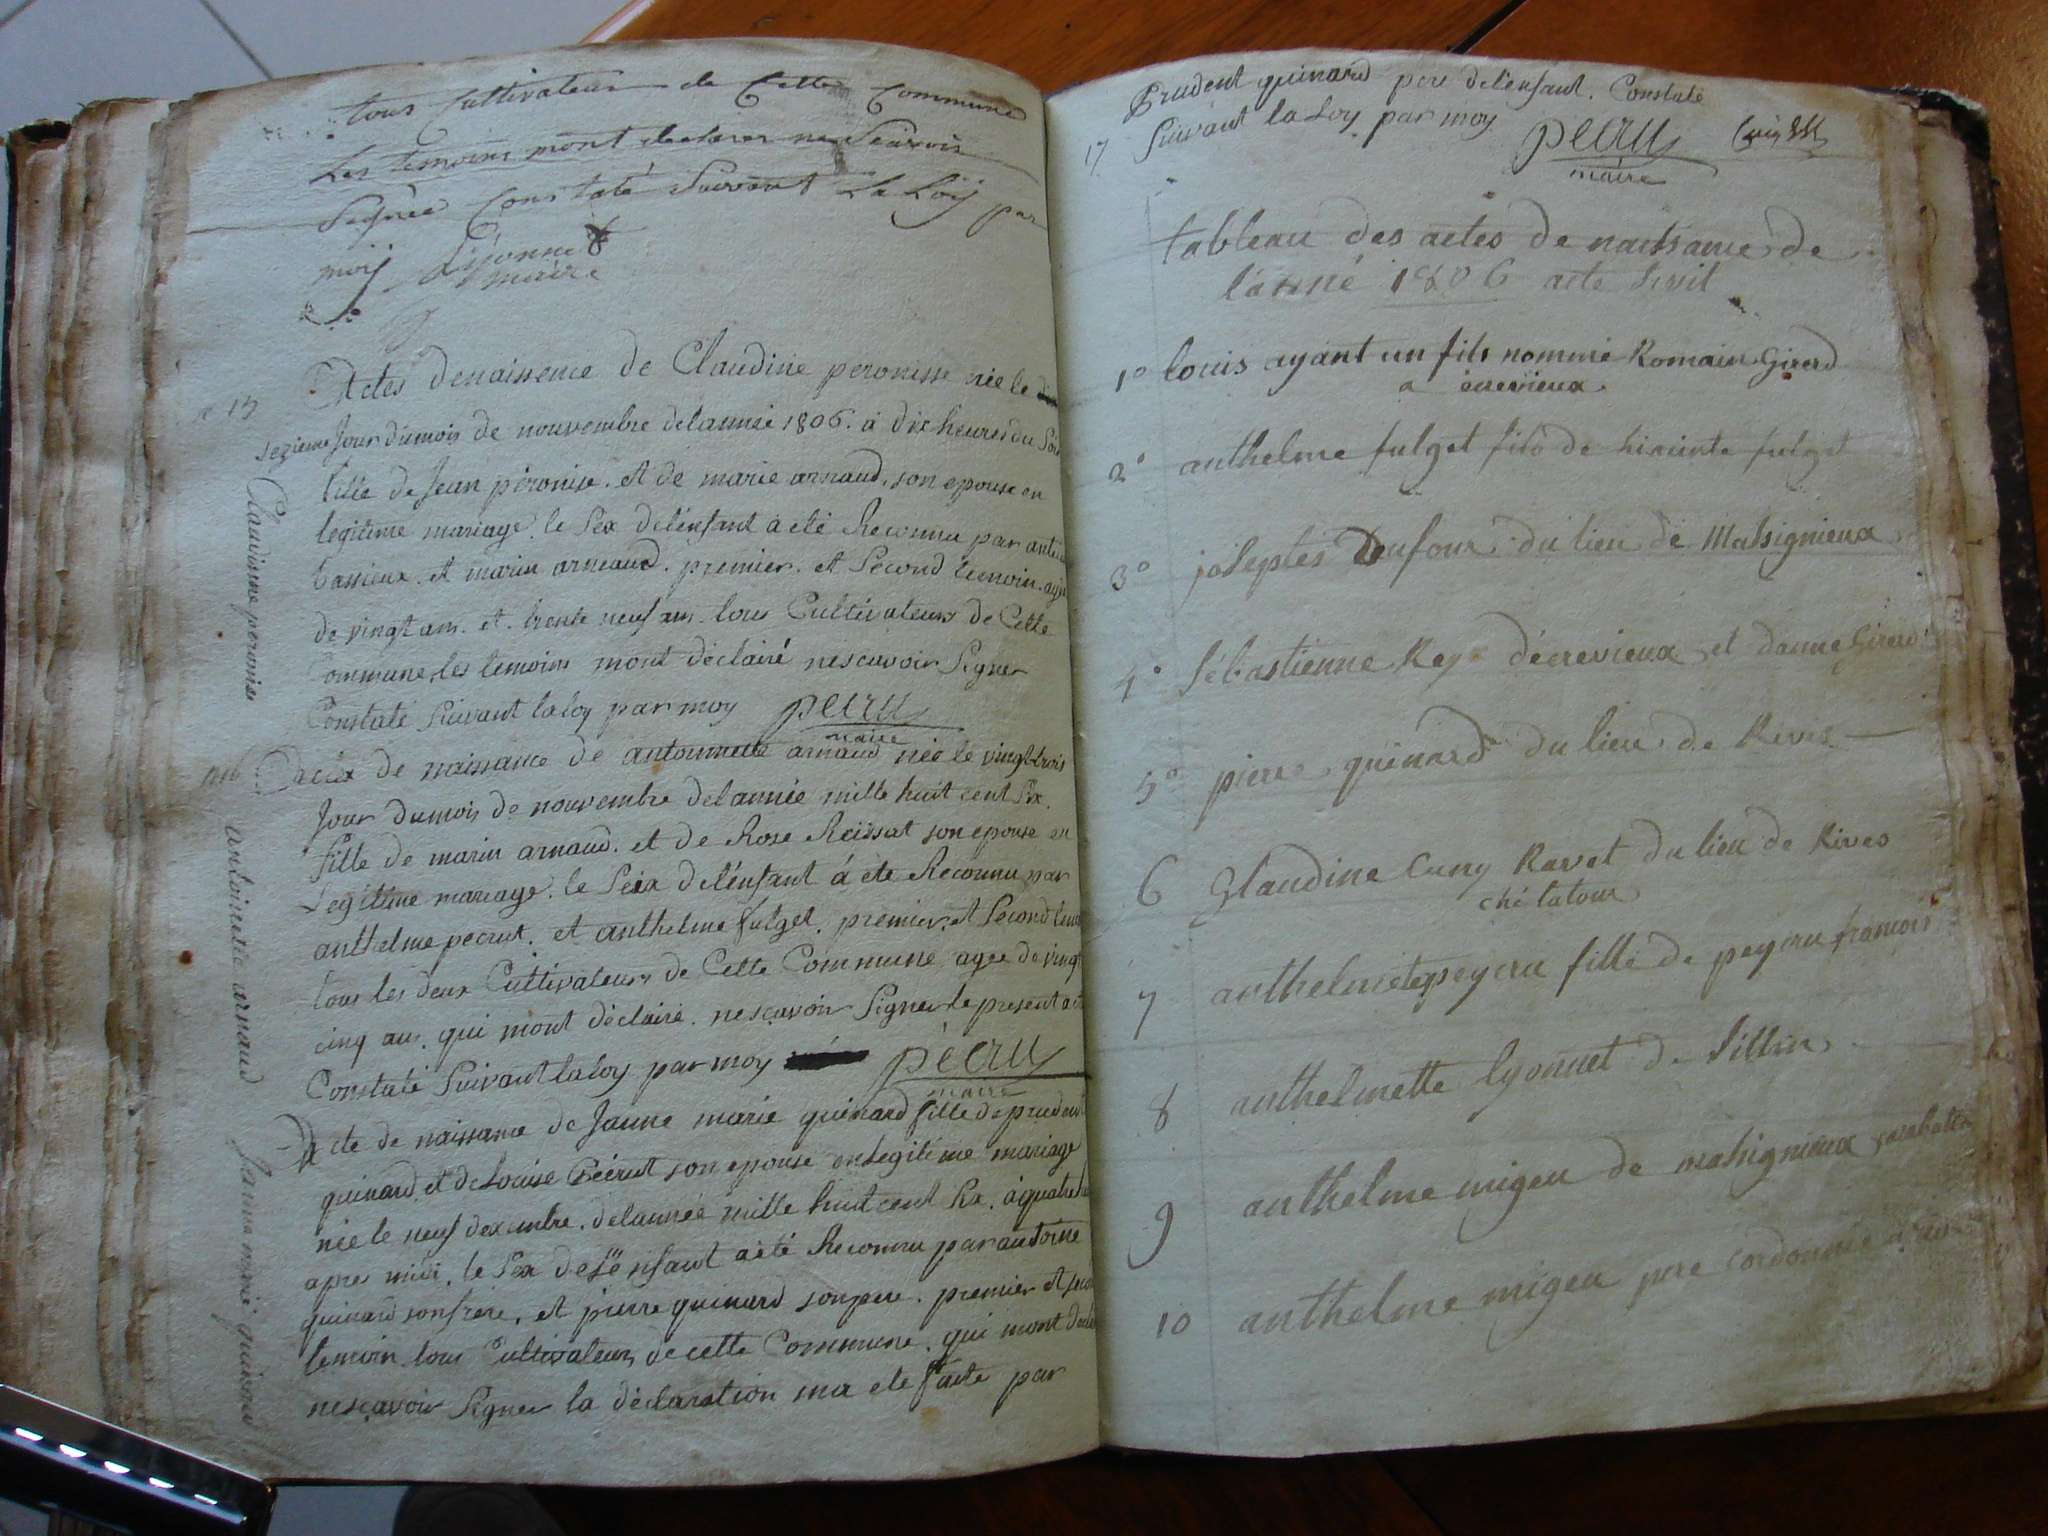 tous Cultivateur de Cette Commune
Les temoins mont declarer ne Scavoir
Signée Constaté Suivant La Loÿ par
moiÿ Lÿonnet
maire
n 15
Actes denaissence de Claudine peronisse née le
sezieme Jour dumois de nouvembre delannée 1806. à dix heures du Soir
fille de Jean péronise. et de marie arnaud, son epouse en
legitime mariage. le Sex delénfant à eté Reconnu par
bassieux. et marin arneaud. premier. et Second temoin.
de vingt ans. et. trente neuf ans. tous Cultivateurs de Cette
Commune, les temoins mont déclairé nescavoir Signer
Constaté Suivant laloy par moy pecru
maire
Claudinne peronise
acte de naissance de antoinnette arnaud née le vingt trois
Jour dumois de nouvembre delannée mille huit cent Six.
fille de marin arnaud. et de Rose Reissat son epouse en
Legitime mariage. le Seix delénfant à eté Reconnu par
anthelme pecrut. et anthelme fulget. premier. et Second
tous les deux Cultivateurs de Cette Commune agee de vingt
cinq ans. qui mont déclairé. nescavoir Signer le present
Constaté Suivant laloy par moy pécru
maire
antoinette arnaud
Acte de naissance de Janne marie quinard fille de prudent
quinard et de Louise Pécrut son epouse en Legitime mariage
née le neuf dexembre. delannée mille huit cent Six. à quatre
apres midi. le Sex de lénfant a eté Reconnu par antoine
quinard son frere. et pierre quinard son pere. premier et
temoin. tous Cultivateurs de cette Commune. qui mont
nescavoir Signer la déclaration ma ete faite par
Janne marie quinard
Prudent quinard pere delénfant. Constaté
17 Suivant la Loy par moy pecru
maire
tableau des actes de naissance de
lánné 1806 acte Sivil
1° louis ayant un fils nommé Romain Girerd
a écrevieux
2° anthelme fulget fils de hiacinte fulget
3° joseptes Dufour du lieu de Malsignieux
4° Sébastienne Rey décrevieux et danne Girerd
5° pierre quinard du lieu de Rives
6 Glaudine Cuny Ravet du lieu de Rives
ché latour
7 anthelmette peycru fille de peycru francois
8 anthelmette lyonnet de Sillin
9 anthelme migeu de malsignieux
10 anthelme migeu pere cordonnié